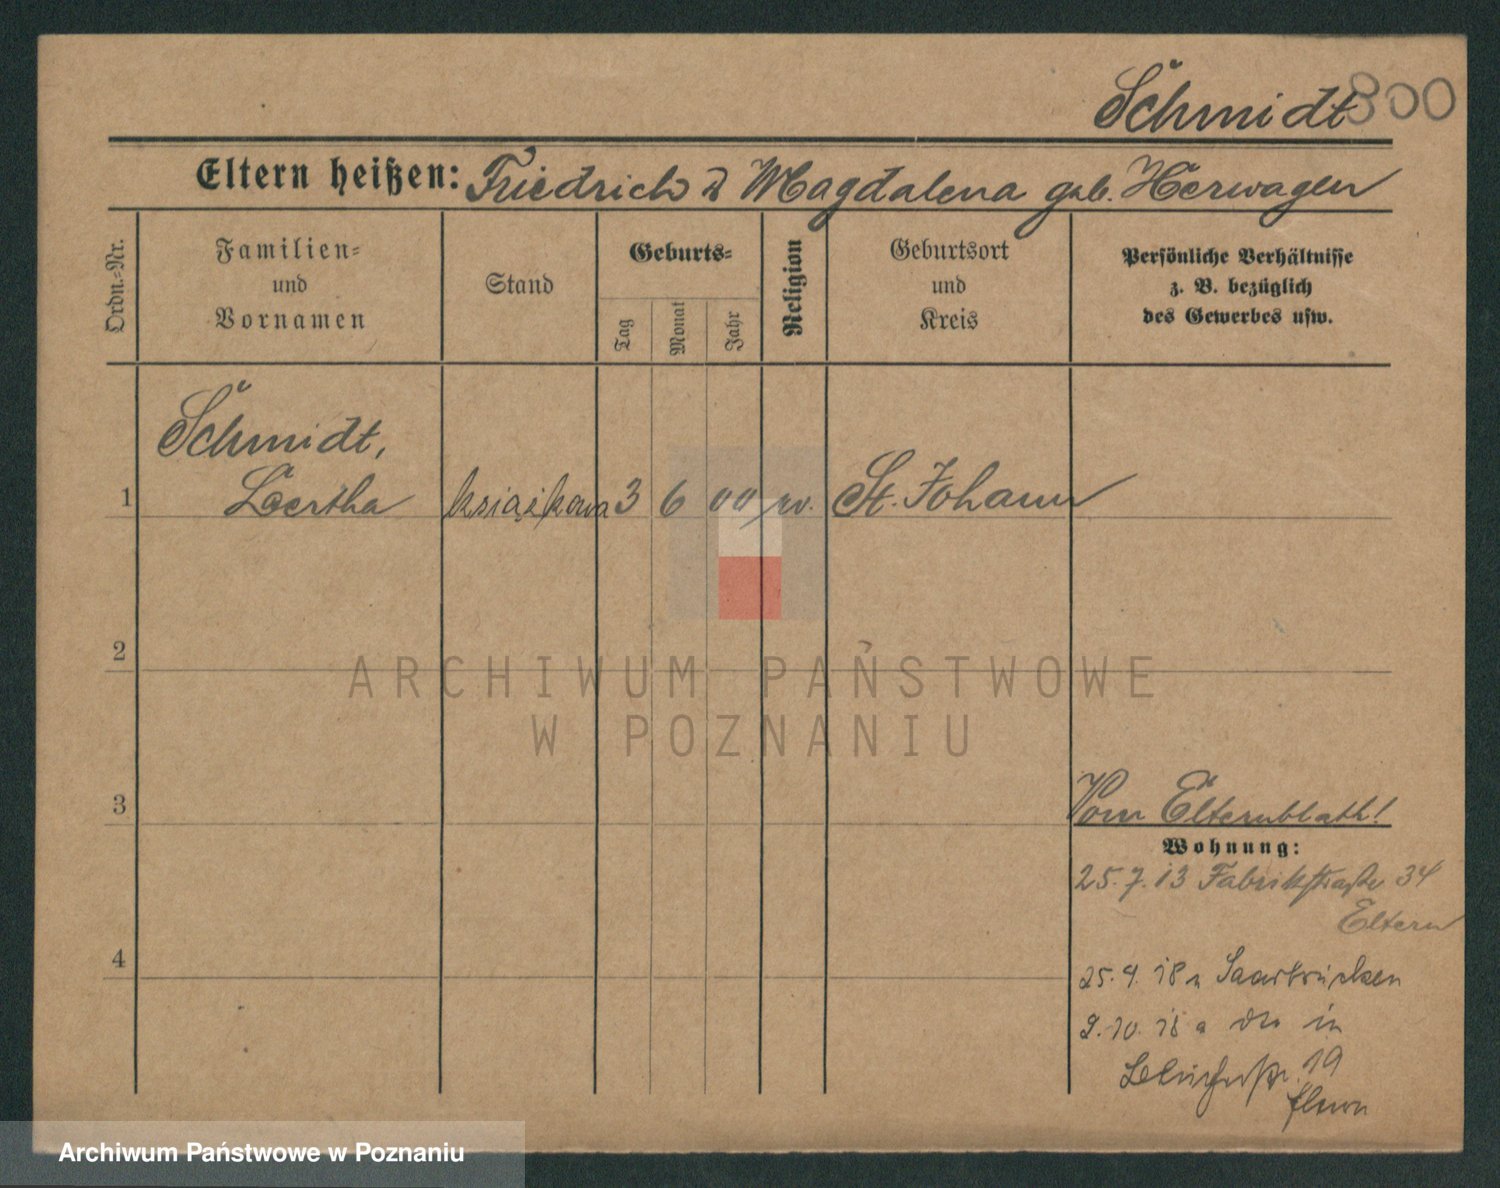 Schmidt 800
Eltern heißen: Friedrich u Magdalena geb. Herwagen
Ordn.-Nr.
Familien-
und
Vornamen
Stand
Geburts-
Tag
Monat
Jahr
Religion
Geburtsort
und
Kreis
Persönliche Verhältnisse
z. B. bezüglich
des Gewerbes usw.
Schmidt,
1 Bertha książkowa 3 6 00 St. Johann
2
3
4
Vom Elternblatt!
Wohnung:
25.7.13 Fabrikstraße 34
Eltern
25.4.18 n Saarbrücken
2.10.18 a dto in
19
Eltern
ARCHIWUM PAŃSTWOWE
W POZNANIU
Archiwum Państwowe w Poznaniu